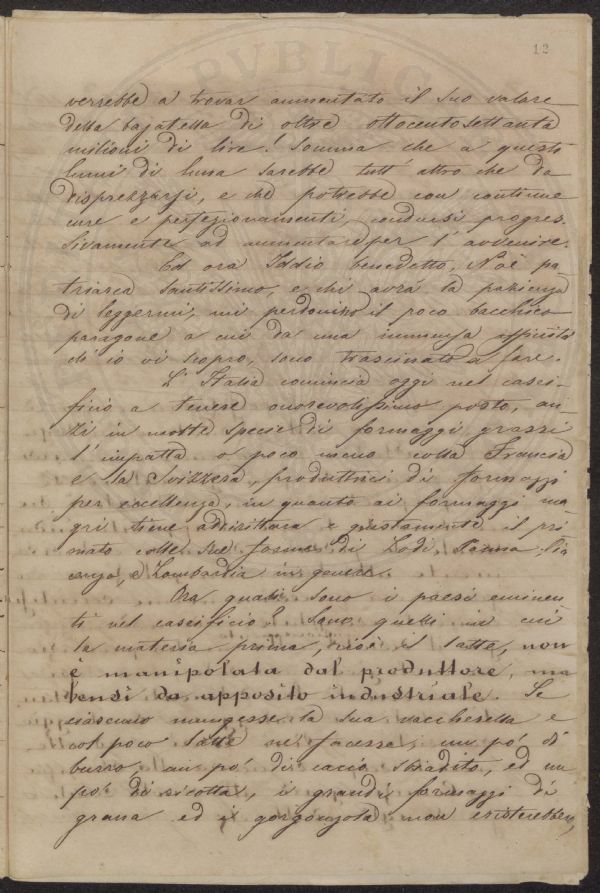 12
verrebbe a trovar aumentato il suo valore
della bajatella di oltre ottocentosettanta
milioni di lire! Somma che a questi
lumi di luna sarebbe tutt' altro che da
disprezzarsi, e che potrebbe con continue
cure e perfezionamenti condursi progres-
sivamente ad aumentare per l' avvenire.
Ed ora Iddio benedetto, Noè pa-
triarca santissimo, e chi avrà la pazienza
di leggermi, mi perdonino il poco bacchico
paragone a cui da una immensa
ch' io vi scopro, sono trascinato a fare.
L' Italia comincia oggi nel casei-
ficio a tenere onorevolissimo posto, an-
zi in molte specie di formaggi grassi
l' impatta o poco meno colla Francia
e la Svizzera, produttrici di formaggi
per eccellenza, in quanto ai formaggi ma-
gri tiene addirittura e giustamente il pri-
mato colle sue forme di Lodi, Parma, Pia-
cenza, e Lombardia in genere.
Ora quali sono i paesi eminen-
ti nel caseificio? Sono quelli in cui
la materia prima, cioè il latte, non
è manipolata dal produttore, ma
bensì da apposito industriale. Se
ciascuno mungesse la sua vaccherella e
col poco latte ne facesse, un po' di
burro, un po' di cacio sbiadito, ed un
po' di ricotta, i grandi formaggi di
grana ed i gorgonzola non esisterebbero,